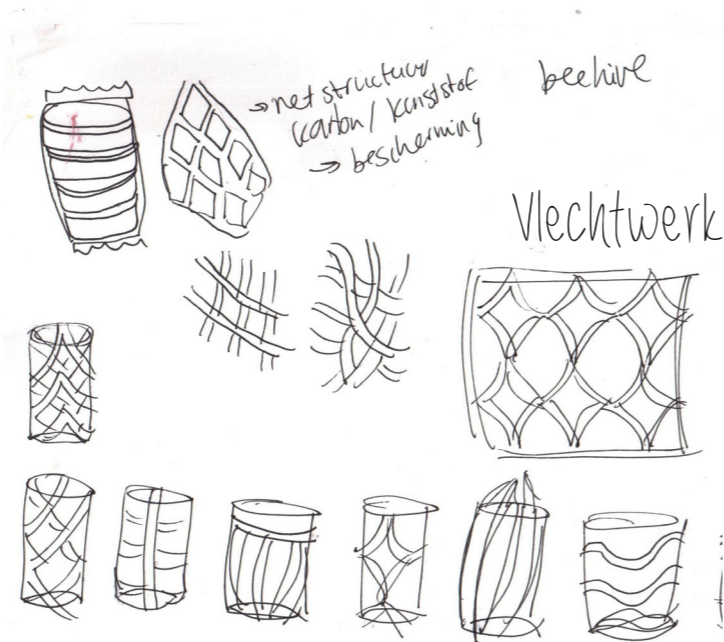 → netstructuur
karton / kunststof
→ bescherming
beehive
Vlechtwerk